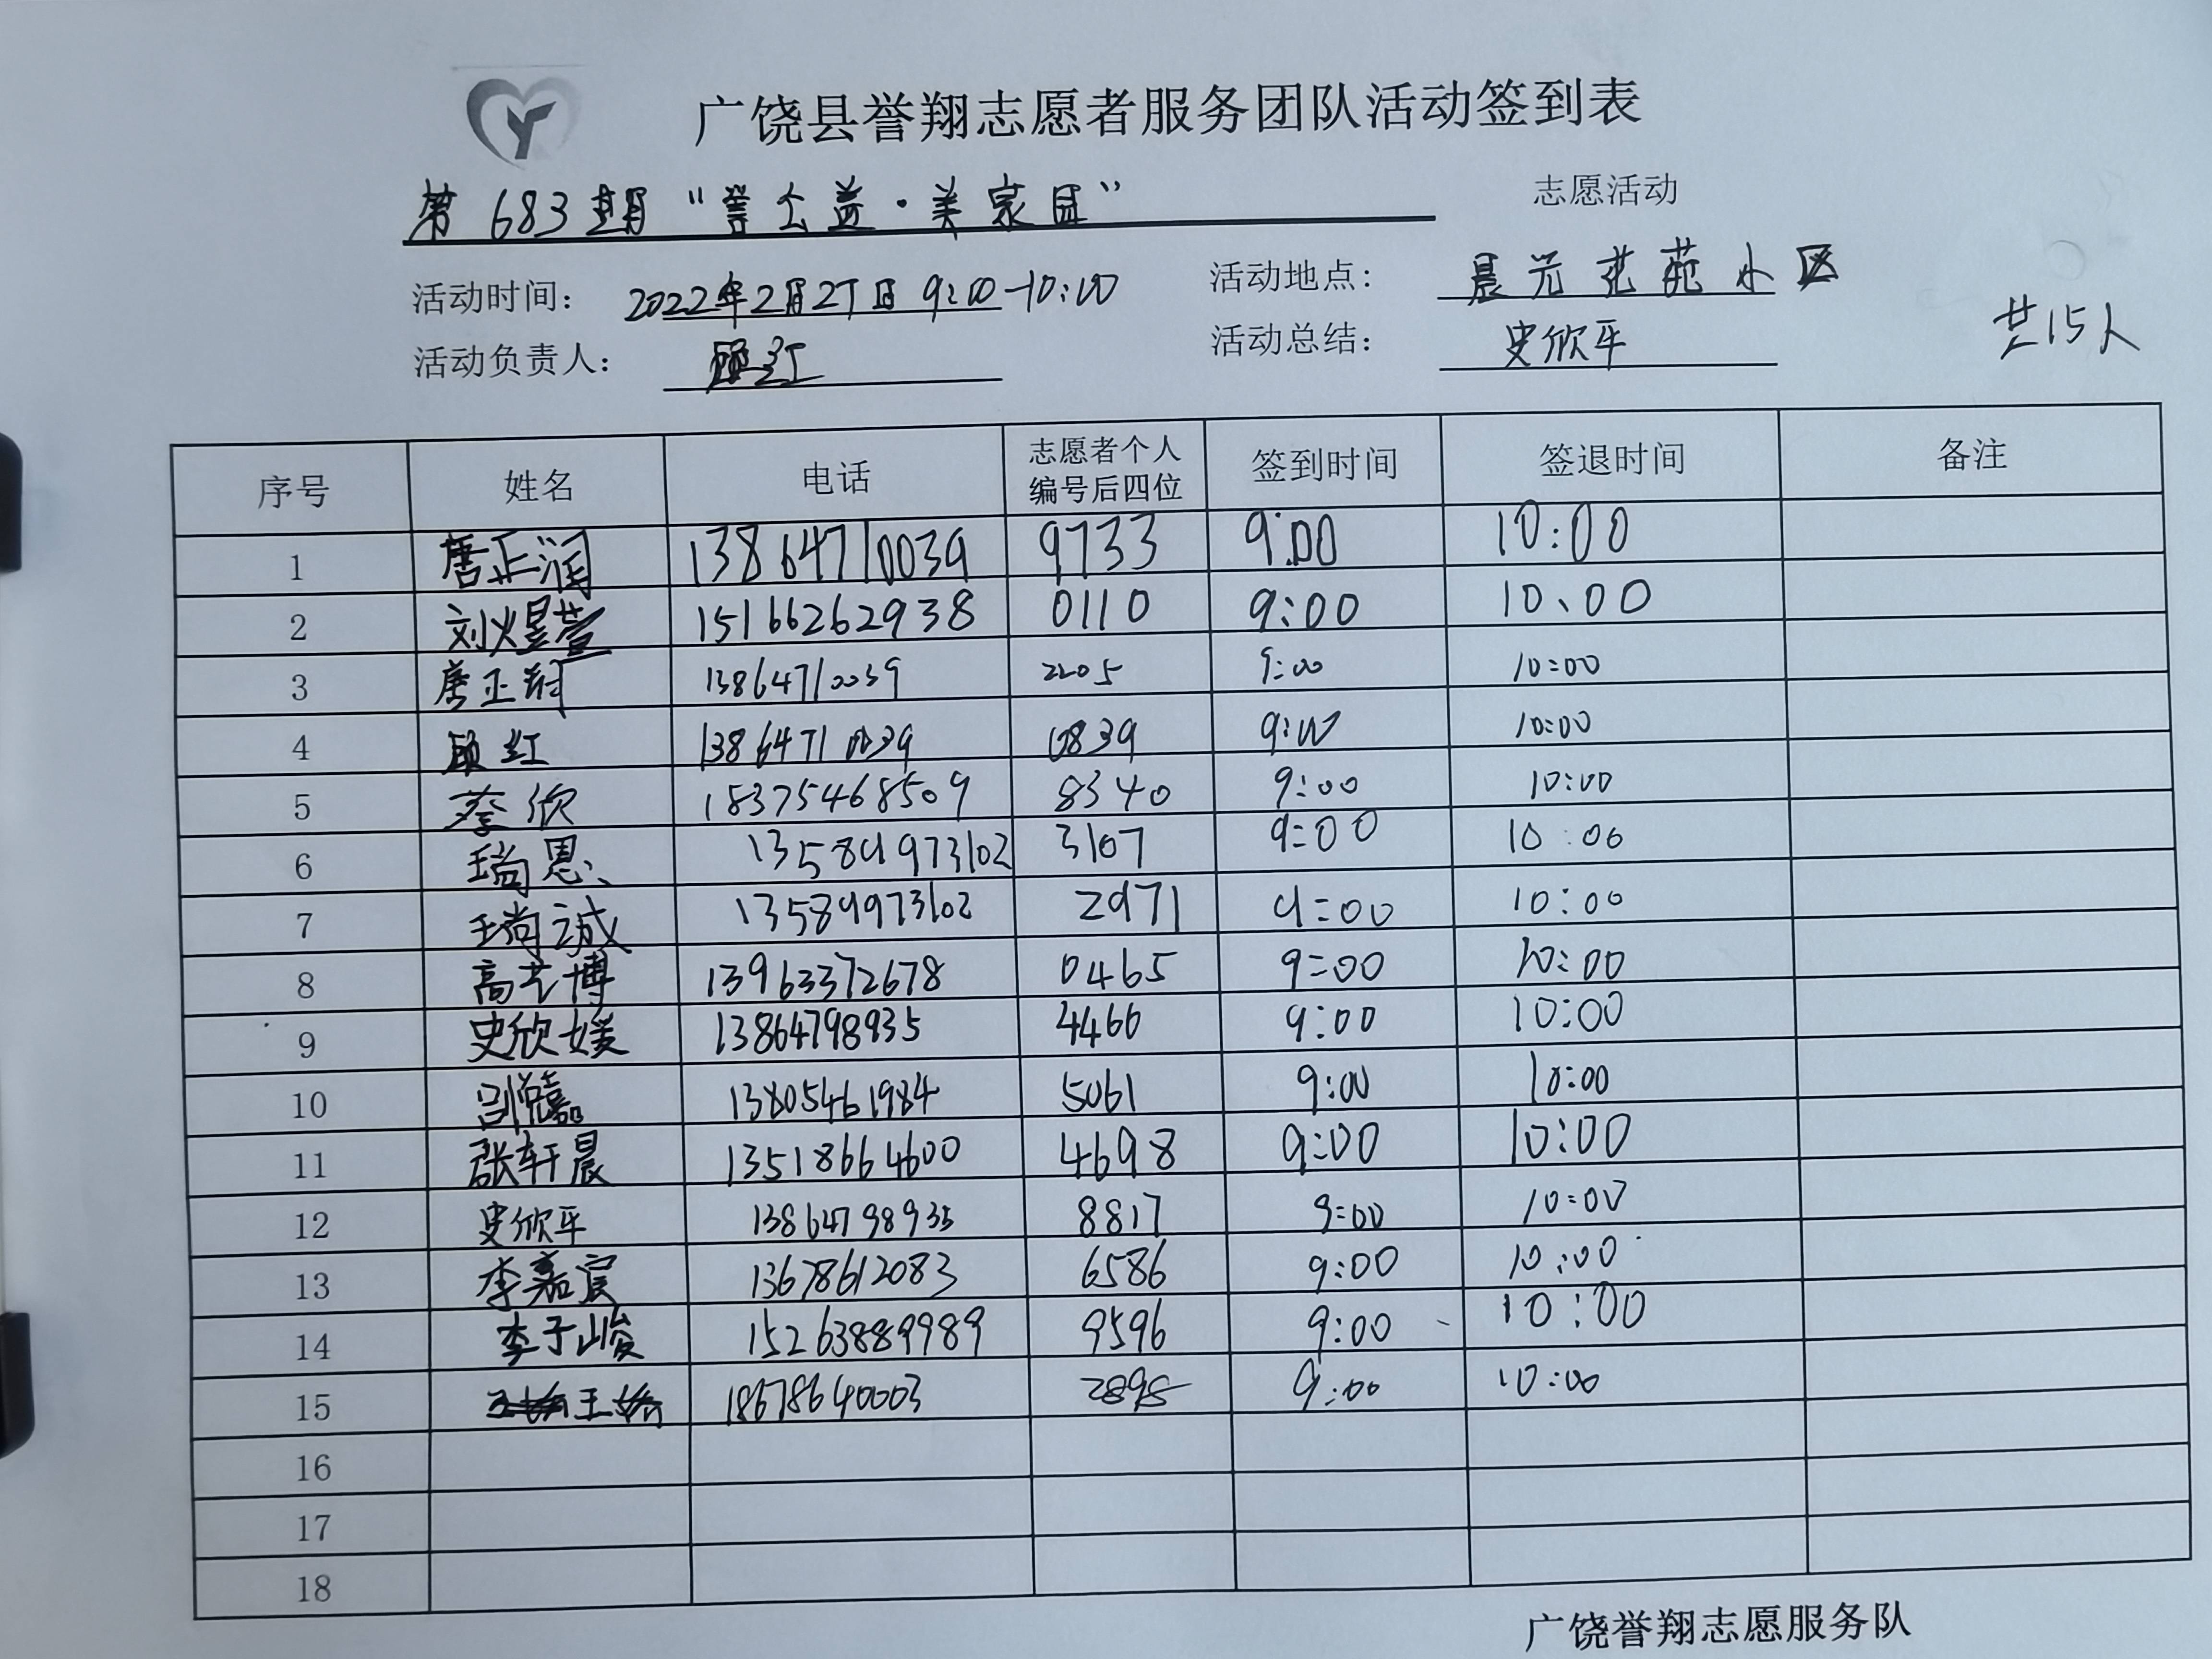 广饶县誉翔志愿者服务团队活动签到表
第683期“誉公益·美家园” 志愿活动
活动时间: 2022年2月27日 9:00-10:00 活动地点: 晨光花苑小区
活动负责人: 顾红 活动总结: 史欣平 共15人
序号 姓名 电话 志愿者个人编号后四位 签到时间 签退时间 备注
1 唐正润 13864710039 9733 9:00 10:00
2 刘煜萱 15166262938 0110 9:00 10:00
3 唐正 13864710039 2205 9:00 10:00
4 顾红 13864710039 0839 9:00 10:00
5 蔡欣 18375468509 8340 9:00 10:00
6 王尚恩 135849973102 3107 9:00 10:00
7 王尚诚 13589973102 2971 9:00 10:00
8 高艺博 13963372678 0465 9:00 10:00
9 史欣媛 13864798935 4466 9:00 10:00
10 吕悦嘉 13805461984 5061 9:00 10:00
11 张轩晨 13518664600 4698 9:00 10:00
12 史欣平 13864798935 8817 9:00 10:00
13 李嘉宸 13678612083 6586 9:00 10:00
14 李子峻 15263889989 9596 9:00 10:00
15 王娇 18678640003 2898 9:00 10:00
16
17
18
广饶誉翔志愿服务队